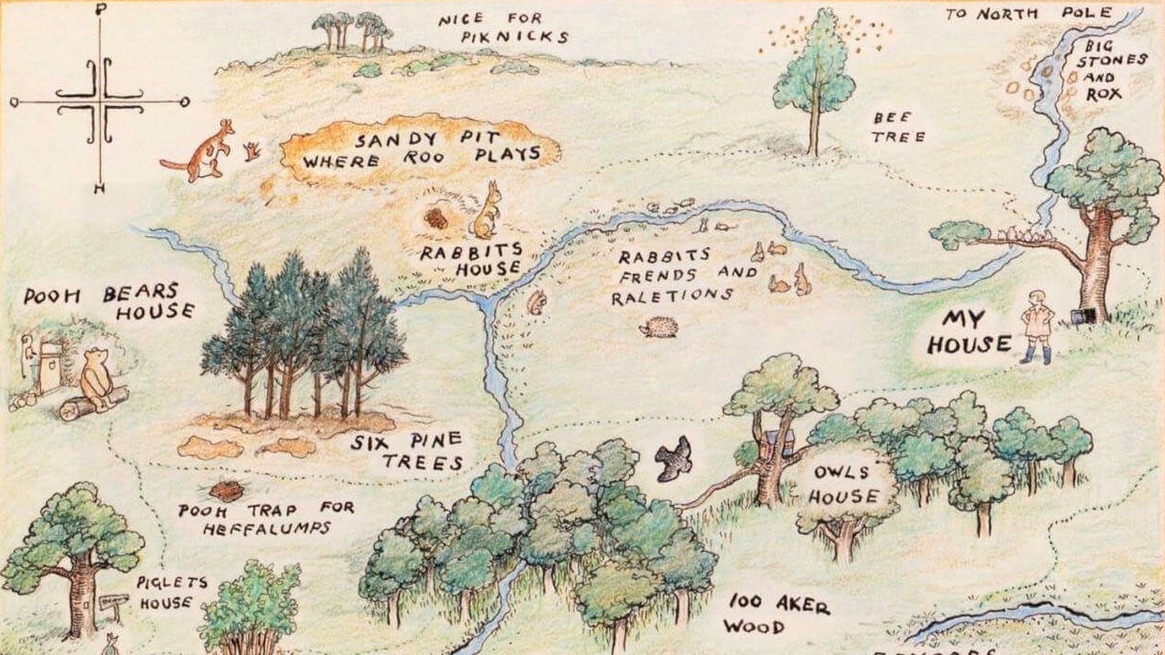 P
O
O
H
NICE FOR
PIKNICKS
TO NORTH POLE
BIG
STONES
AND
ROX
BEE
TREE
SANDY PIT
WHERE ROO PLAYS
RABBITS
HOUSE
RABBITS
FRENDS AND
RALETIONS
POOH BEARS
HOUSE
MY
HOUSE
SIX PINE
TREES
OWLS
HOUSE
POOH TRAP FOR
HEFFALUMPS
PIGLETS
HOUSE
100 AKER
WOOD